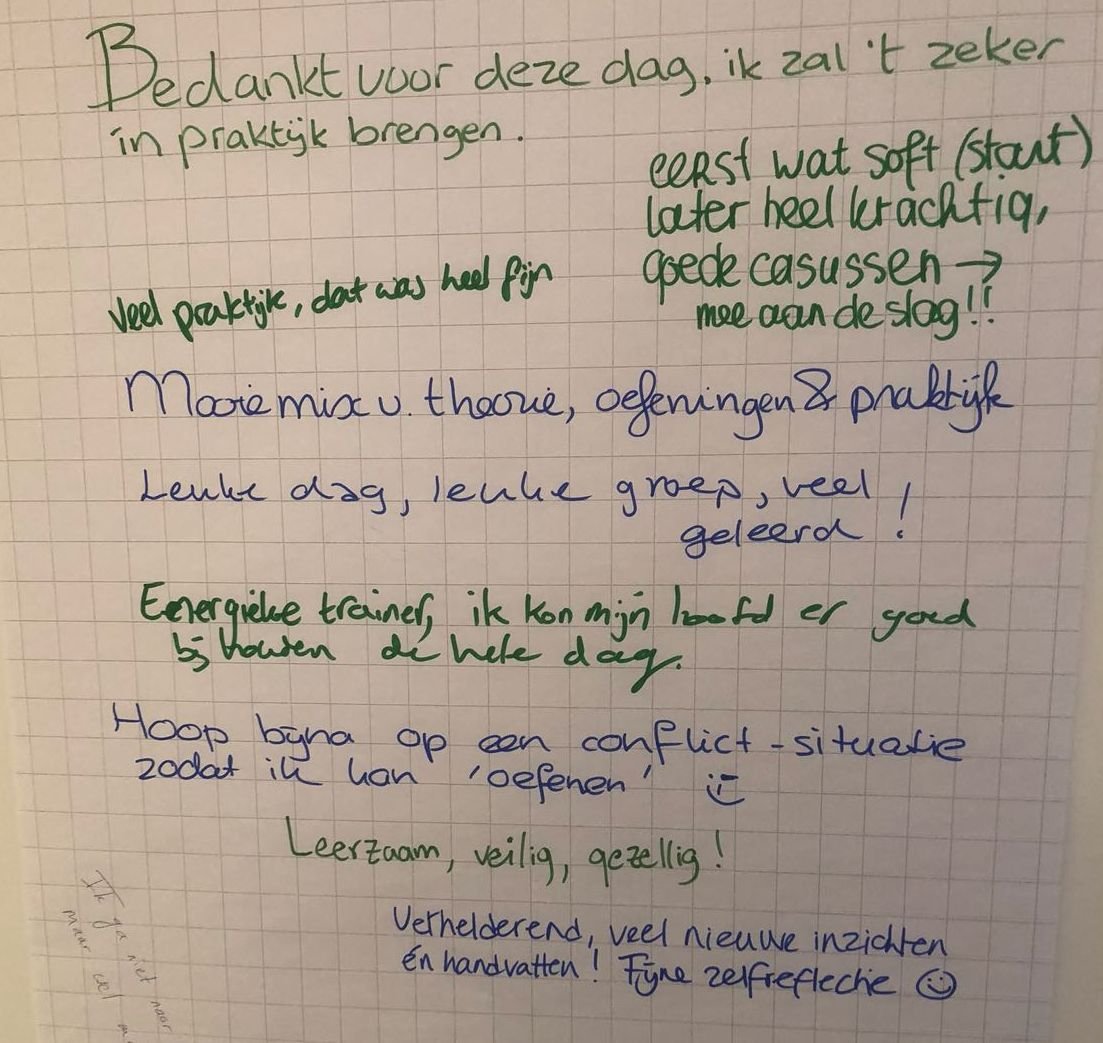 Bedankt voor deze dag, ik zal 't zeker
in praktijk brengen.
eerst wat soft (start)
later heel krachtig,
goede casussen →
mee aan de slag!!
Veel praktijk, dat was heel fijn
Mooie mix v. theorie, oefeningen & praktijk
Leuke dag, leuke groep, veel
geleerd!
Energieke trainer, ik kon mijn hoofd er goed
bij houden de hele dag.
Hoop bijna op een conflict-situatie
zodat ik kan 'oefenen' :)
Leerzaam, veilig, gezellig!
Verhelderend, veel nieuwe inzichten
én handvatten! Fijne zelfreflectie ☺
Ik ga niet naar
maar wel